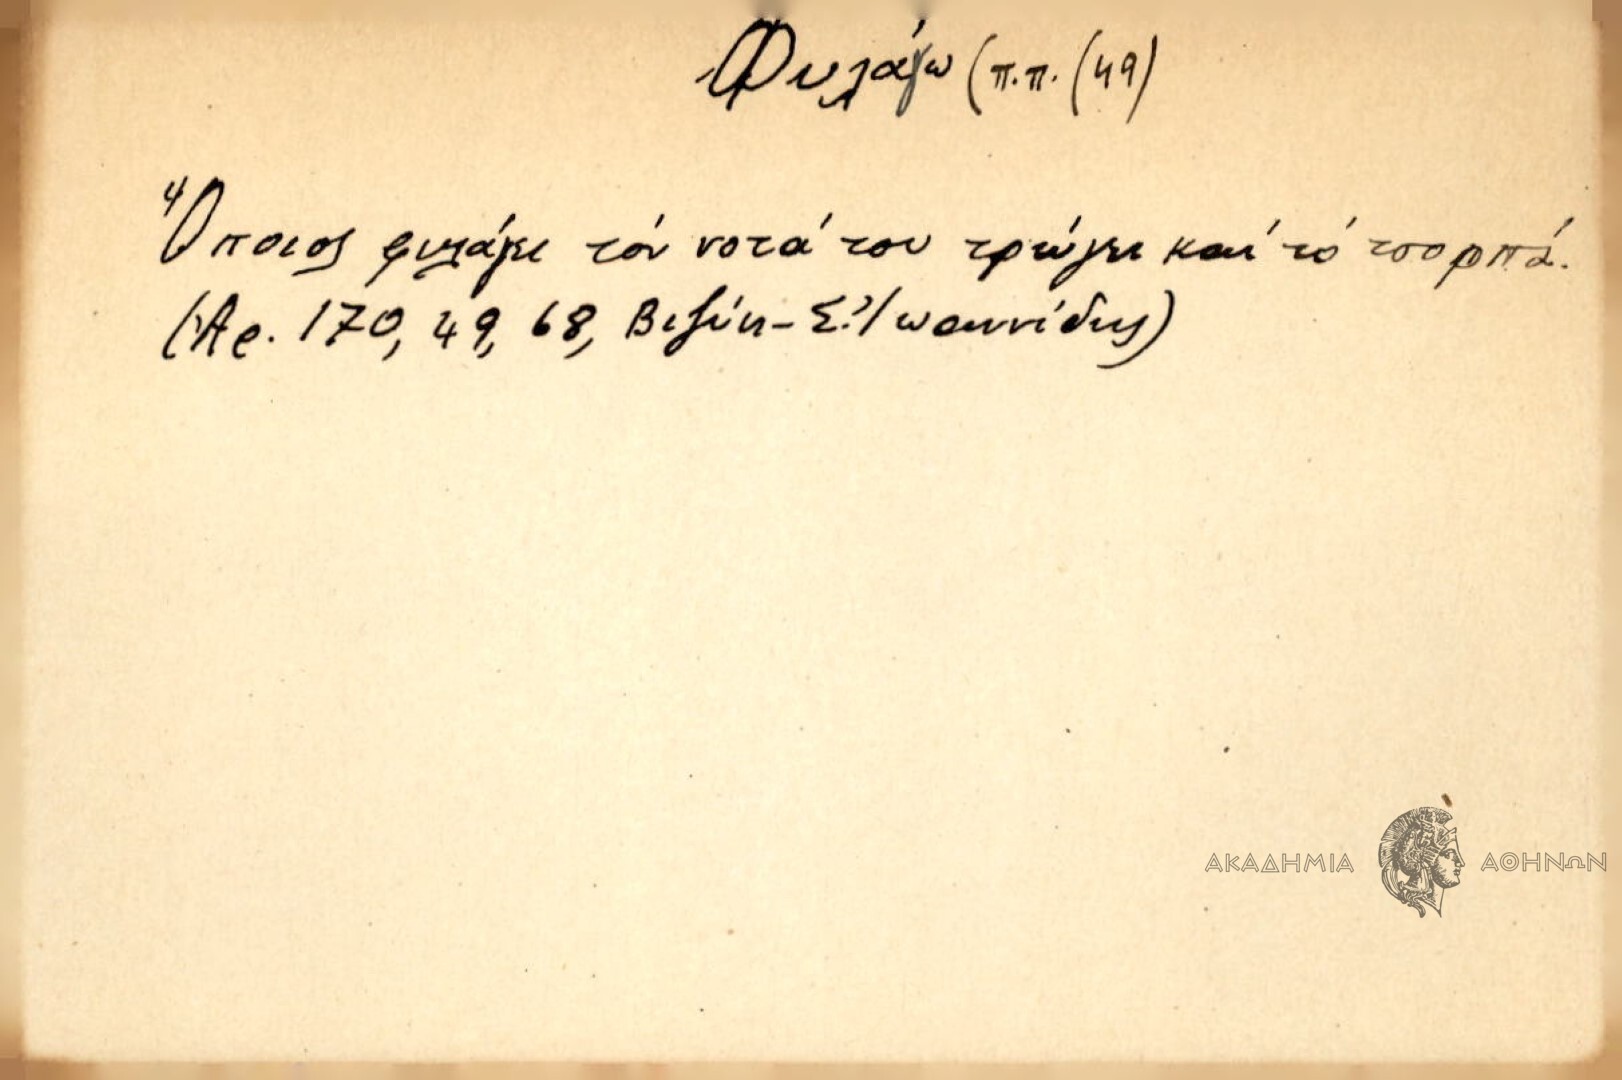 Φυλάγω (π.π. (49)
Ὅποιος φυλάγει τόν νοτά του τρώγει καί τό τσορπά.
(Ἀρ. 170, 49, 68, Βιζύη - Σ. Ἰωαννίδης)
ΑΚΑΔΗΜΙΑ ΑΘΗΝΩΝ